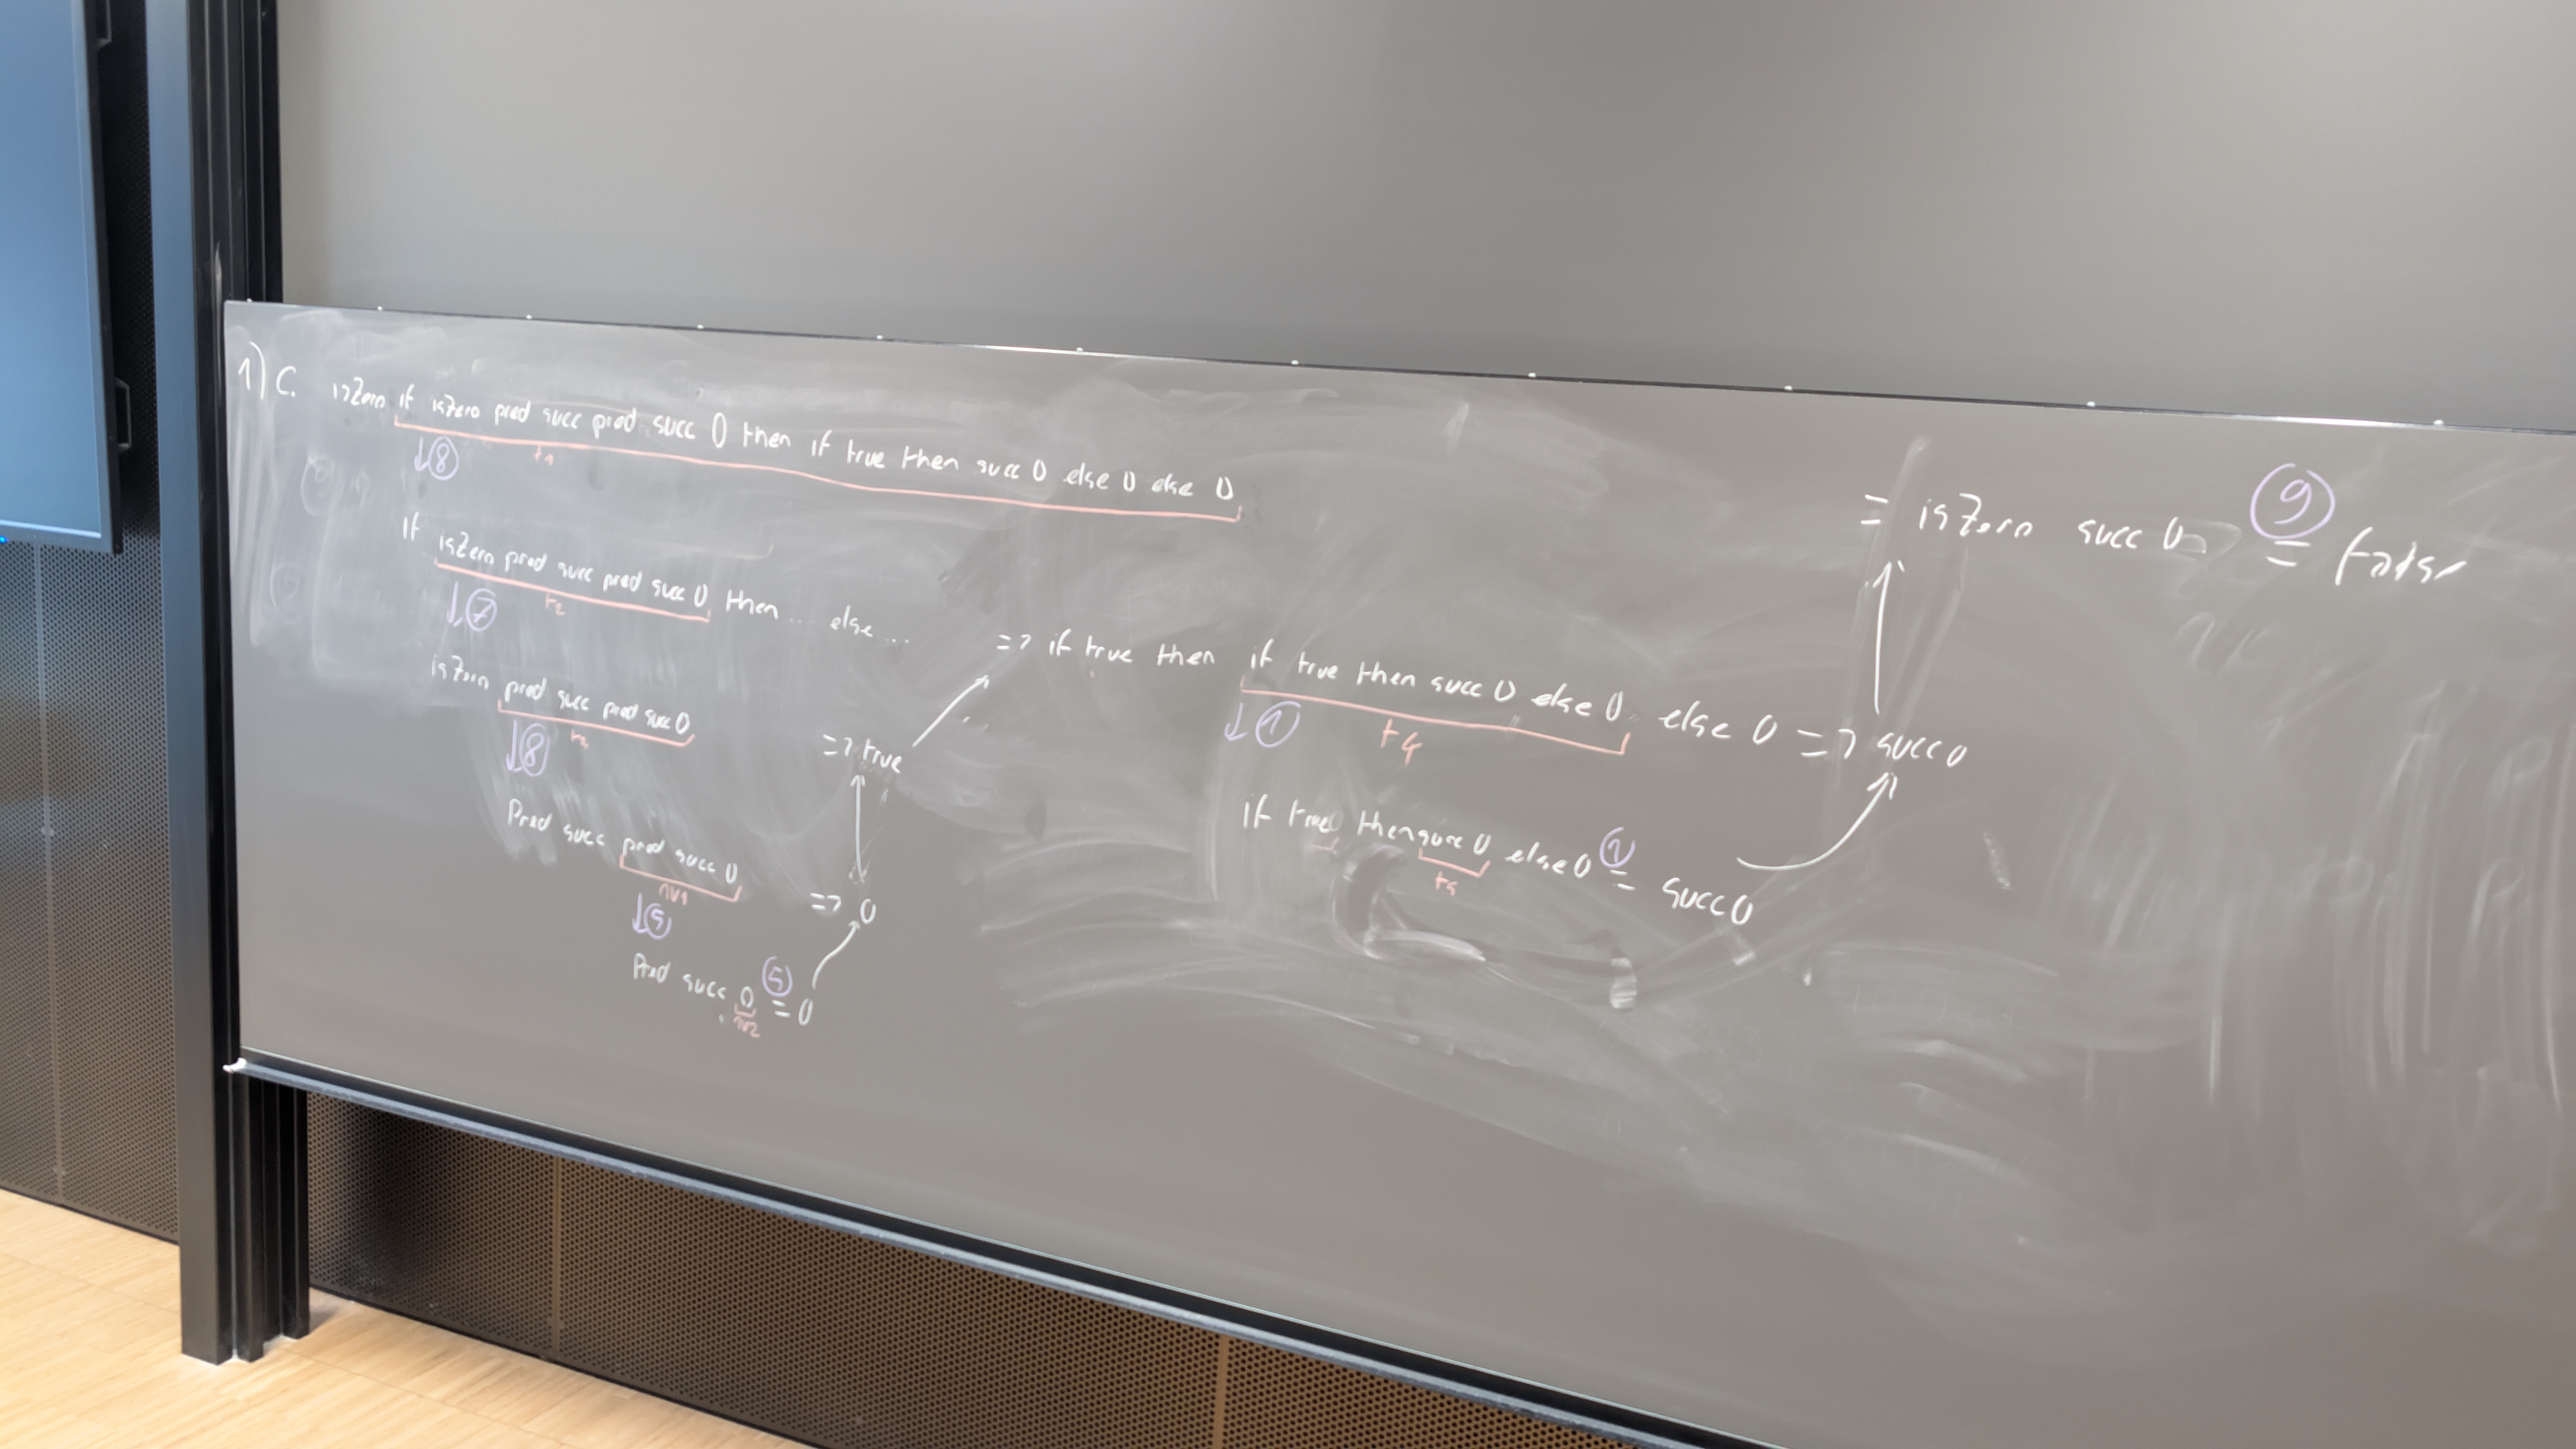 1) C. isZero if isZero pred succ pred succ 0 then if true then succ 0 else 0 else 0
↓ ⑧ t1
if isZero pred succ pred succ 0 then ... else ...
↓ ⑦ t2
isZero pred succ pred succ 0
↓ ⑧ t3
=> true
Pred succ pred succ 0
nv1
↓ ⑤
=> 0
Pred succ 0 ⑤ = 0
nv2
=> if true then if true then succ 0 else 0 else 0 => succ 0
↓ ① t4
if true then succ 0 else 0 ① = succ 0
= isZero succ 0 ⑨ = false